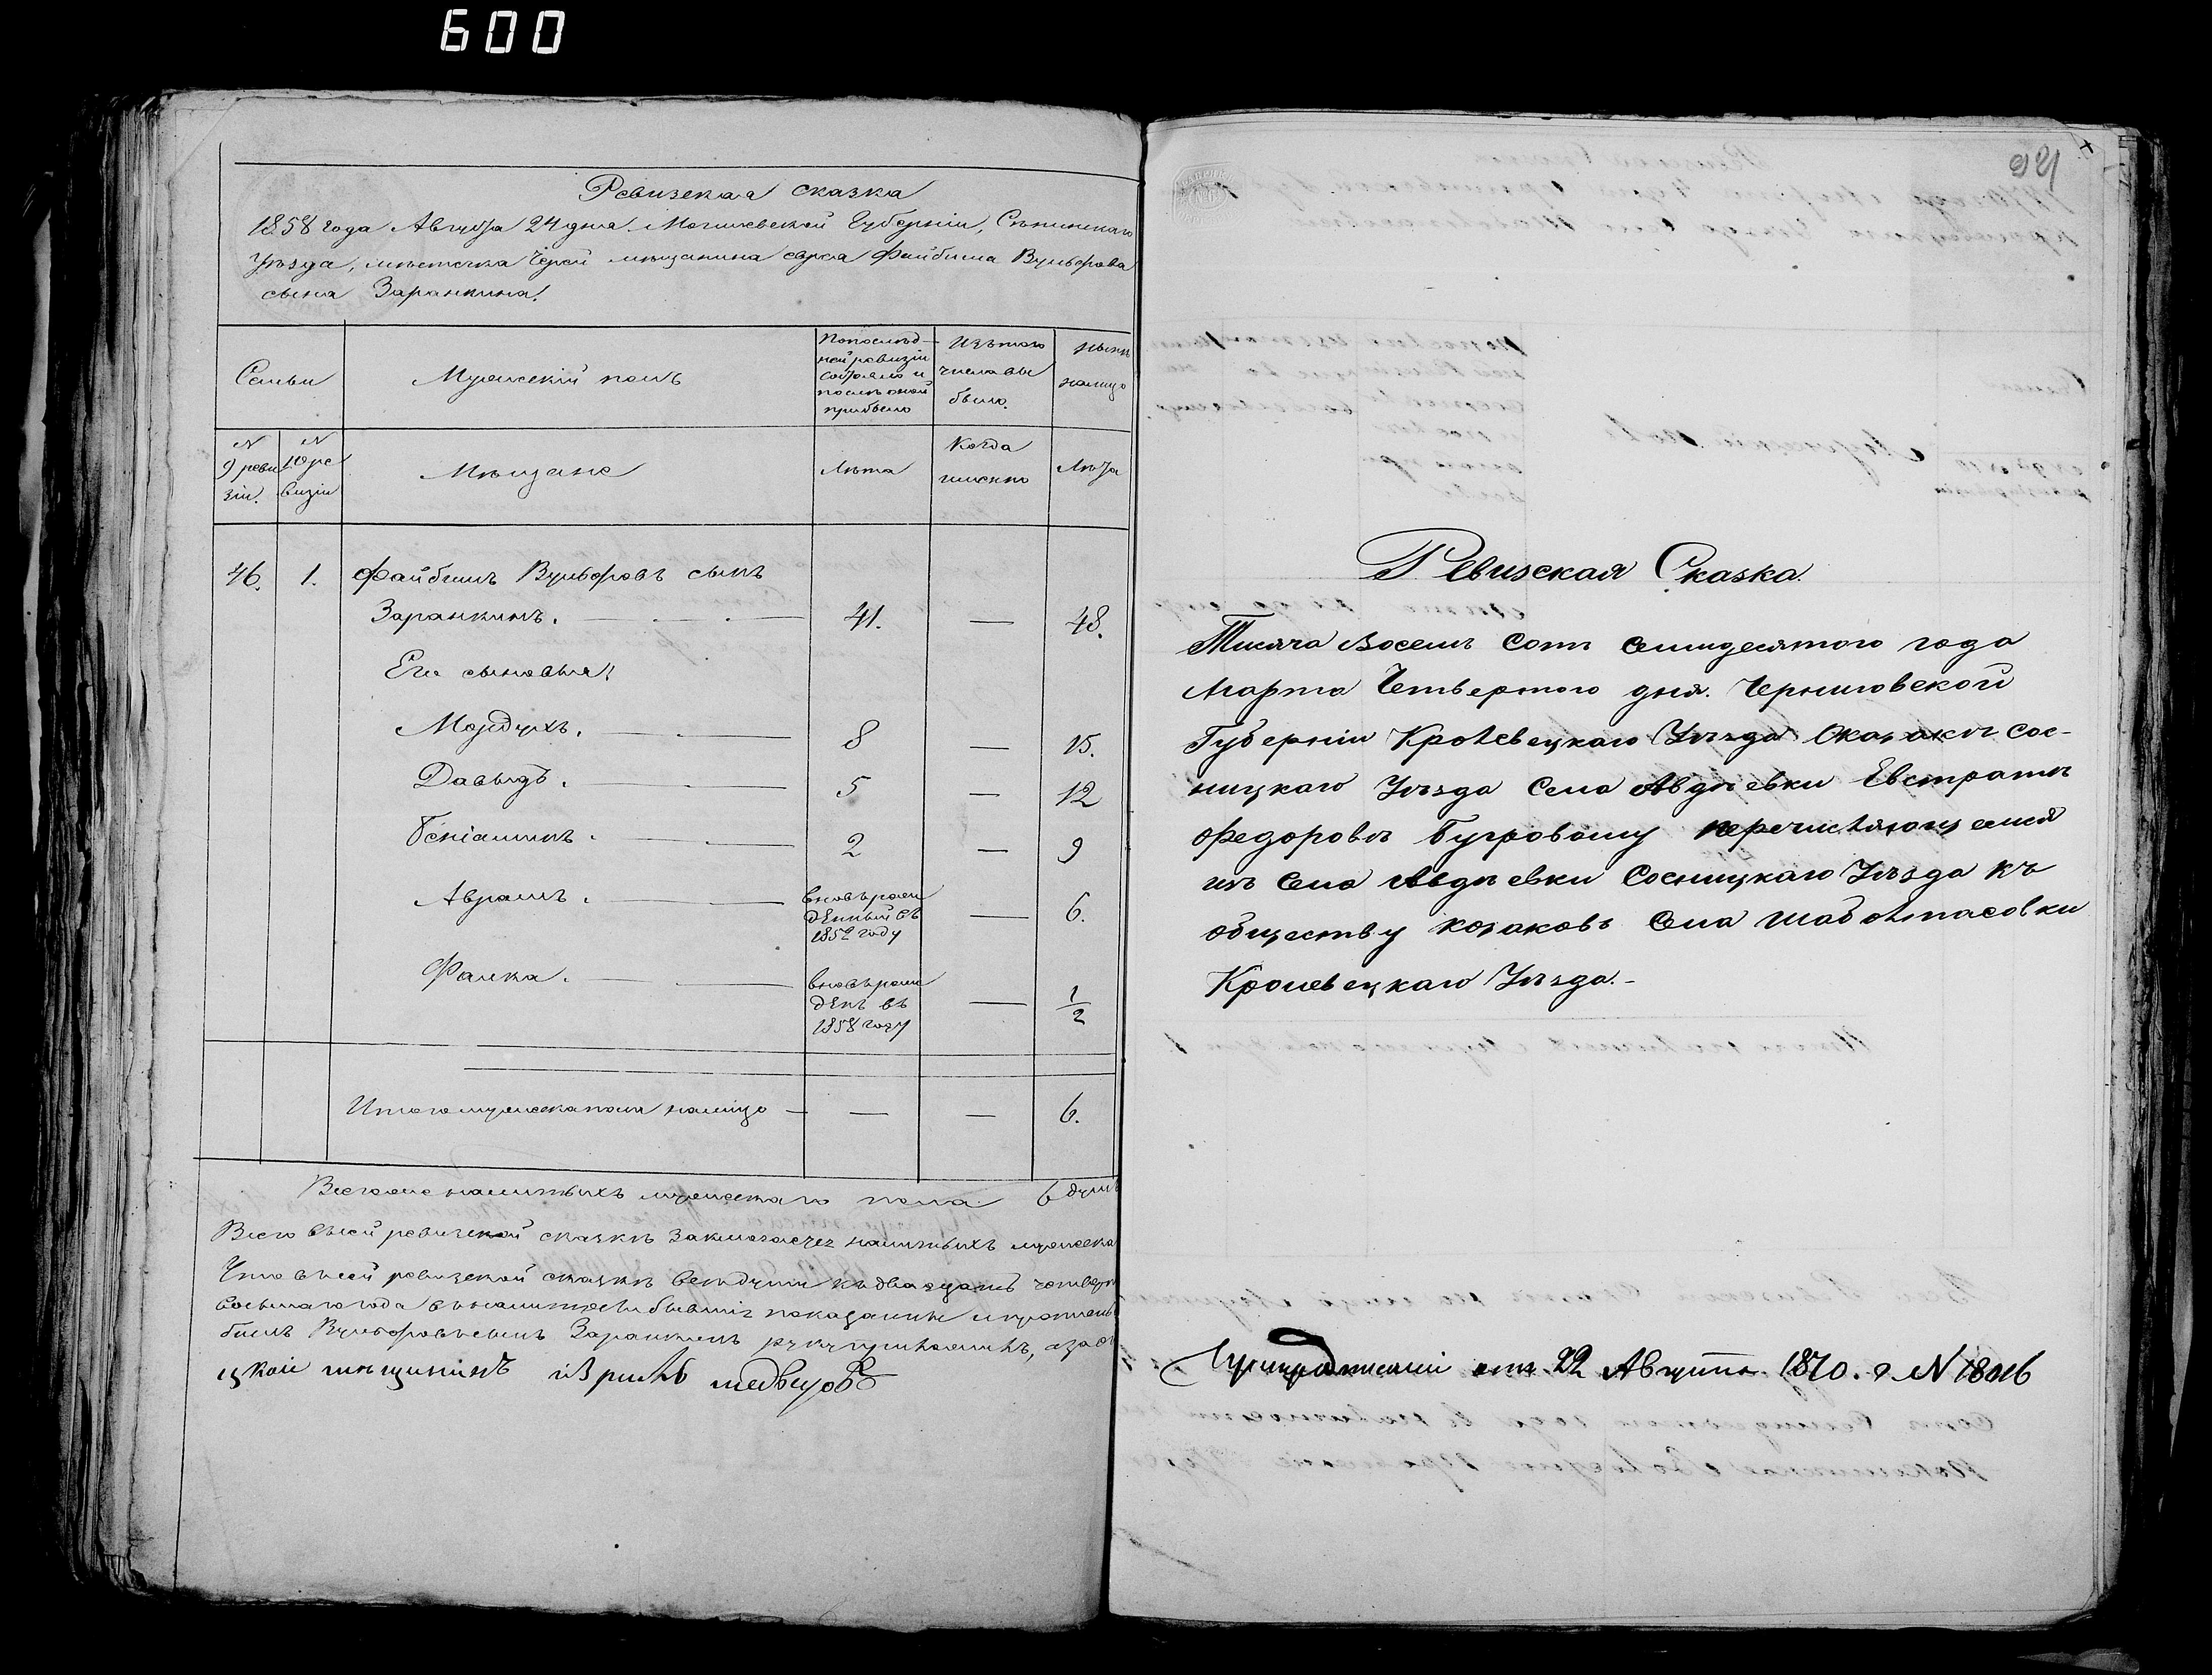 600
Ревизская сказка
1858 года Августа 24 дня Могилевской Губерніи, Сѣнинскаго
Уѣзда, мѣстечка Череи мѣщанина еврея Файбиша Вульфова
сына Заранкина.
Семьи
Мужескій полъ
По послѣд-
ней ревизіи
состояло и
послѣ оной
прибыло
Изъ того
числа вы
было.
Нынѣ
на лицо
№
9 реви
зіи.
№
10 ре
визіи
Мѣщане
Лѣта
Когда
именно
Лѣта
46. 1. Файбишъ Вульфовъ сынъ
Заранкинъ. 41. — 48.
Его сыновья:
Мордухъ. 8 — 15.
Давыдъ. 5 — 12
Беніаминъ. 2 — 9
Абрамъ. вновь рож
денный въ
1852 году — 6.
Фалка. вновь рож
денъ въ
1858 году — 1/2
Итого мужеска пола на лицо — — — 6.
Всего наличныхъ мужескаго пола 6 душъ
Всего в сей ревизской сказкѣ заключается наличныхъ мужеска
Что в сей ревизской сказкѣ всѣ души къ двадцать четверт
восьмаго года в наличности бывшіе показаны и
бишъ Вульфовъ сынъ Заранкинъ руку приложилъ, а за
цкой мѣщанинъ
921
Ревизская Сказка.
Тисяча Восемь Сотъ Семидесятого года
Марта Четвертого дня. Черниговской
Губерніи Кролевецкаго Уѣзда О казакѣ Сос-
ницкаго Уѣзда Села Авдѣевки Евстратѣ
Федоровѣ Бугровому перечисляющемся
изъ Села Авдѣевки Сосницкаго Уѣзда къ
обществу козаковъ Села Шаболтасовки
Кролевецкаго Уѣзда.-
При предписаніи отъ 22 Августа 1870. г №